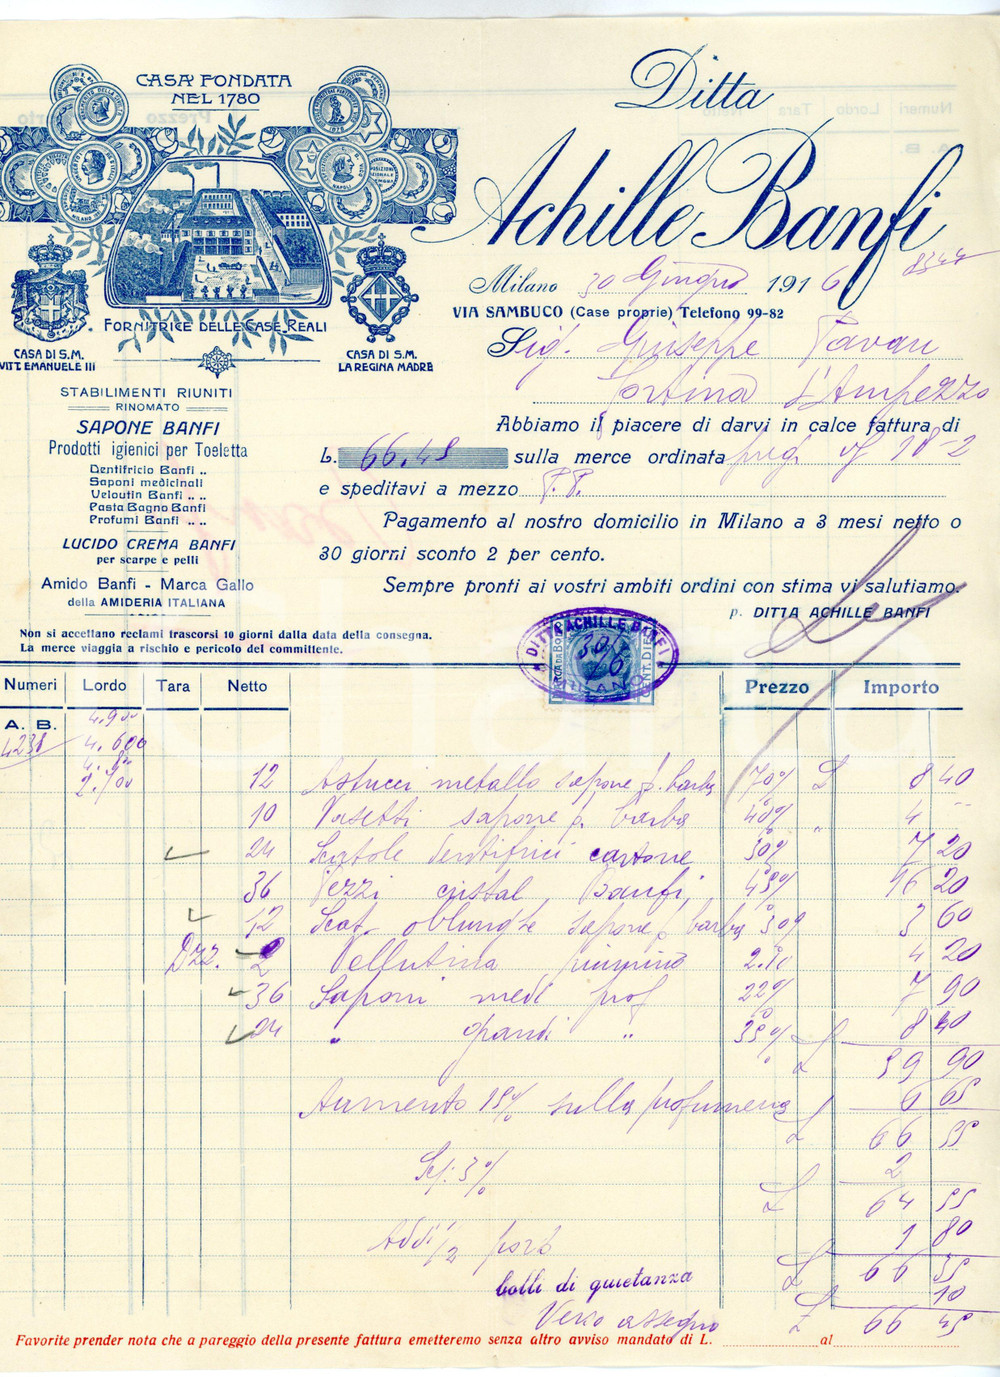 CASA FONDATA
NEL 1780
Ditta
Achille Banfi
Milano 30 Giugno 1916
8344
VIA SAMBUCO (Case proprie) Telefono 99-82
FORNITRICE DELLE CASE REALI
CASA DI S.M.
VITT. EMANUELE III
CASA DI S.M.
LA REGINA MADRE
Sig. Giuseppe Pavan
Cortina d'Ampezzo
STABILIMENTI RIUNITI
RINOMATO
SAPONE BANFI
Prodotti igienici per Toeletta
Dentifricio Banfi ..
Saponi medicinali
Veloutin Banfi .. ..
Pasta Bagno Banfi
Profumi Banfi .. ..
LUCIDO CREMA BANFI
per scarpe e pelli
Amido Banfi - Marca Gallo
della AMIDERIA ITALIANA
Abbiamo il piacere di darvi in calce fattura di
L. 66.45 sulla merce ordinata preg. 18-2
e speditavi a mezzo P.P.
Pagamento al nostro domicilio in Milano a 3 mesi netto o
30 giorni sconto 2 per cento.
Sempre pronti ai vostri ambiti ordini con stima vi salutiamo.
p. DITTA ACHILLE BANFI
Non si accettano reclami trascorsi 10 giorni dalla data della consegna.
La merce viaggia a rischio e pericolo del committente.
DITTA ACHILLE BANFI
MILANO
Numeri Lordo Tara Netto Prezzo Importo
A. B. 4.900
4231 4.600
2.700
12 Astucci metallo sapone p. barba 70% L 8 40
10 Vasetti sapone p. barba 40% " 4 --
24 Scatole dentifrici cartone 30% 7 20
36 Pezzi cristal Banfi 45% 16 20
12 Scat. oblunghe sapone p. barba 30% 3 60
Dzz. 2 Vellutina piumino 2.10 4 20
36 Saponi med. prof 22% 7 90
24 " grandi " 35% L 8 40
L 59 90
Aumento 15% sulla profumeria 6 65
L 66 55
Sc. 3% 2
L 64 55
Addi 1/2 porto 1 80
L 66 35
bolli di quietanza 10
Verso assegno L 66 45
Favorite prender nota che a pareggio della presente fattura emetteremo senza altro avviso mandato di L. al